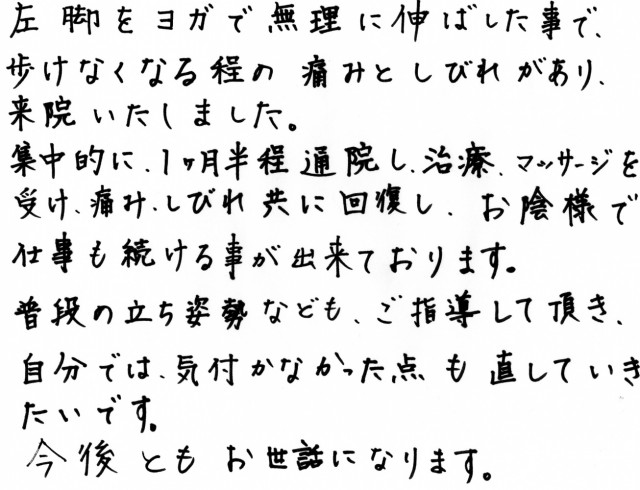 左脚をヨガで無理に伸ばした事で、
歩けなくなる程の痛みとしびれがあり、
来院いたしました。
集中的に、1ヶ月半程通院し、治療、マッサージを
受け、痛み、しびれ共に回復し、お陰様で
仕事も続ける事が出来ております。
普段の立ち姿勢なども、ご指導して頂き、
自分では、気付かなかった点も直していき
たいです。
今後ともお世話になります。